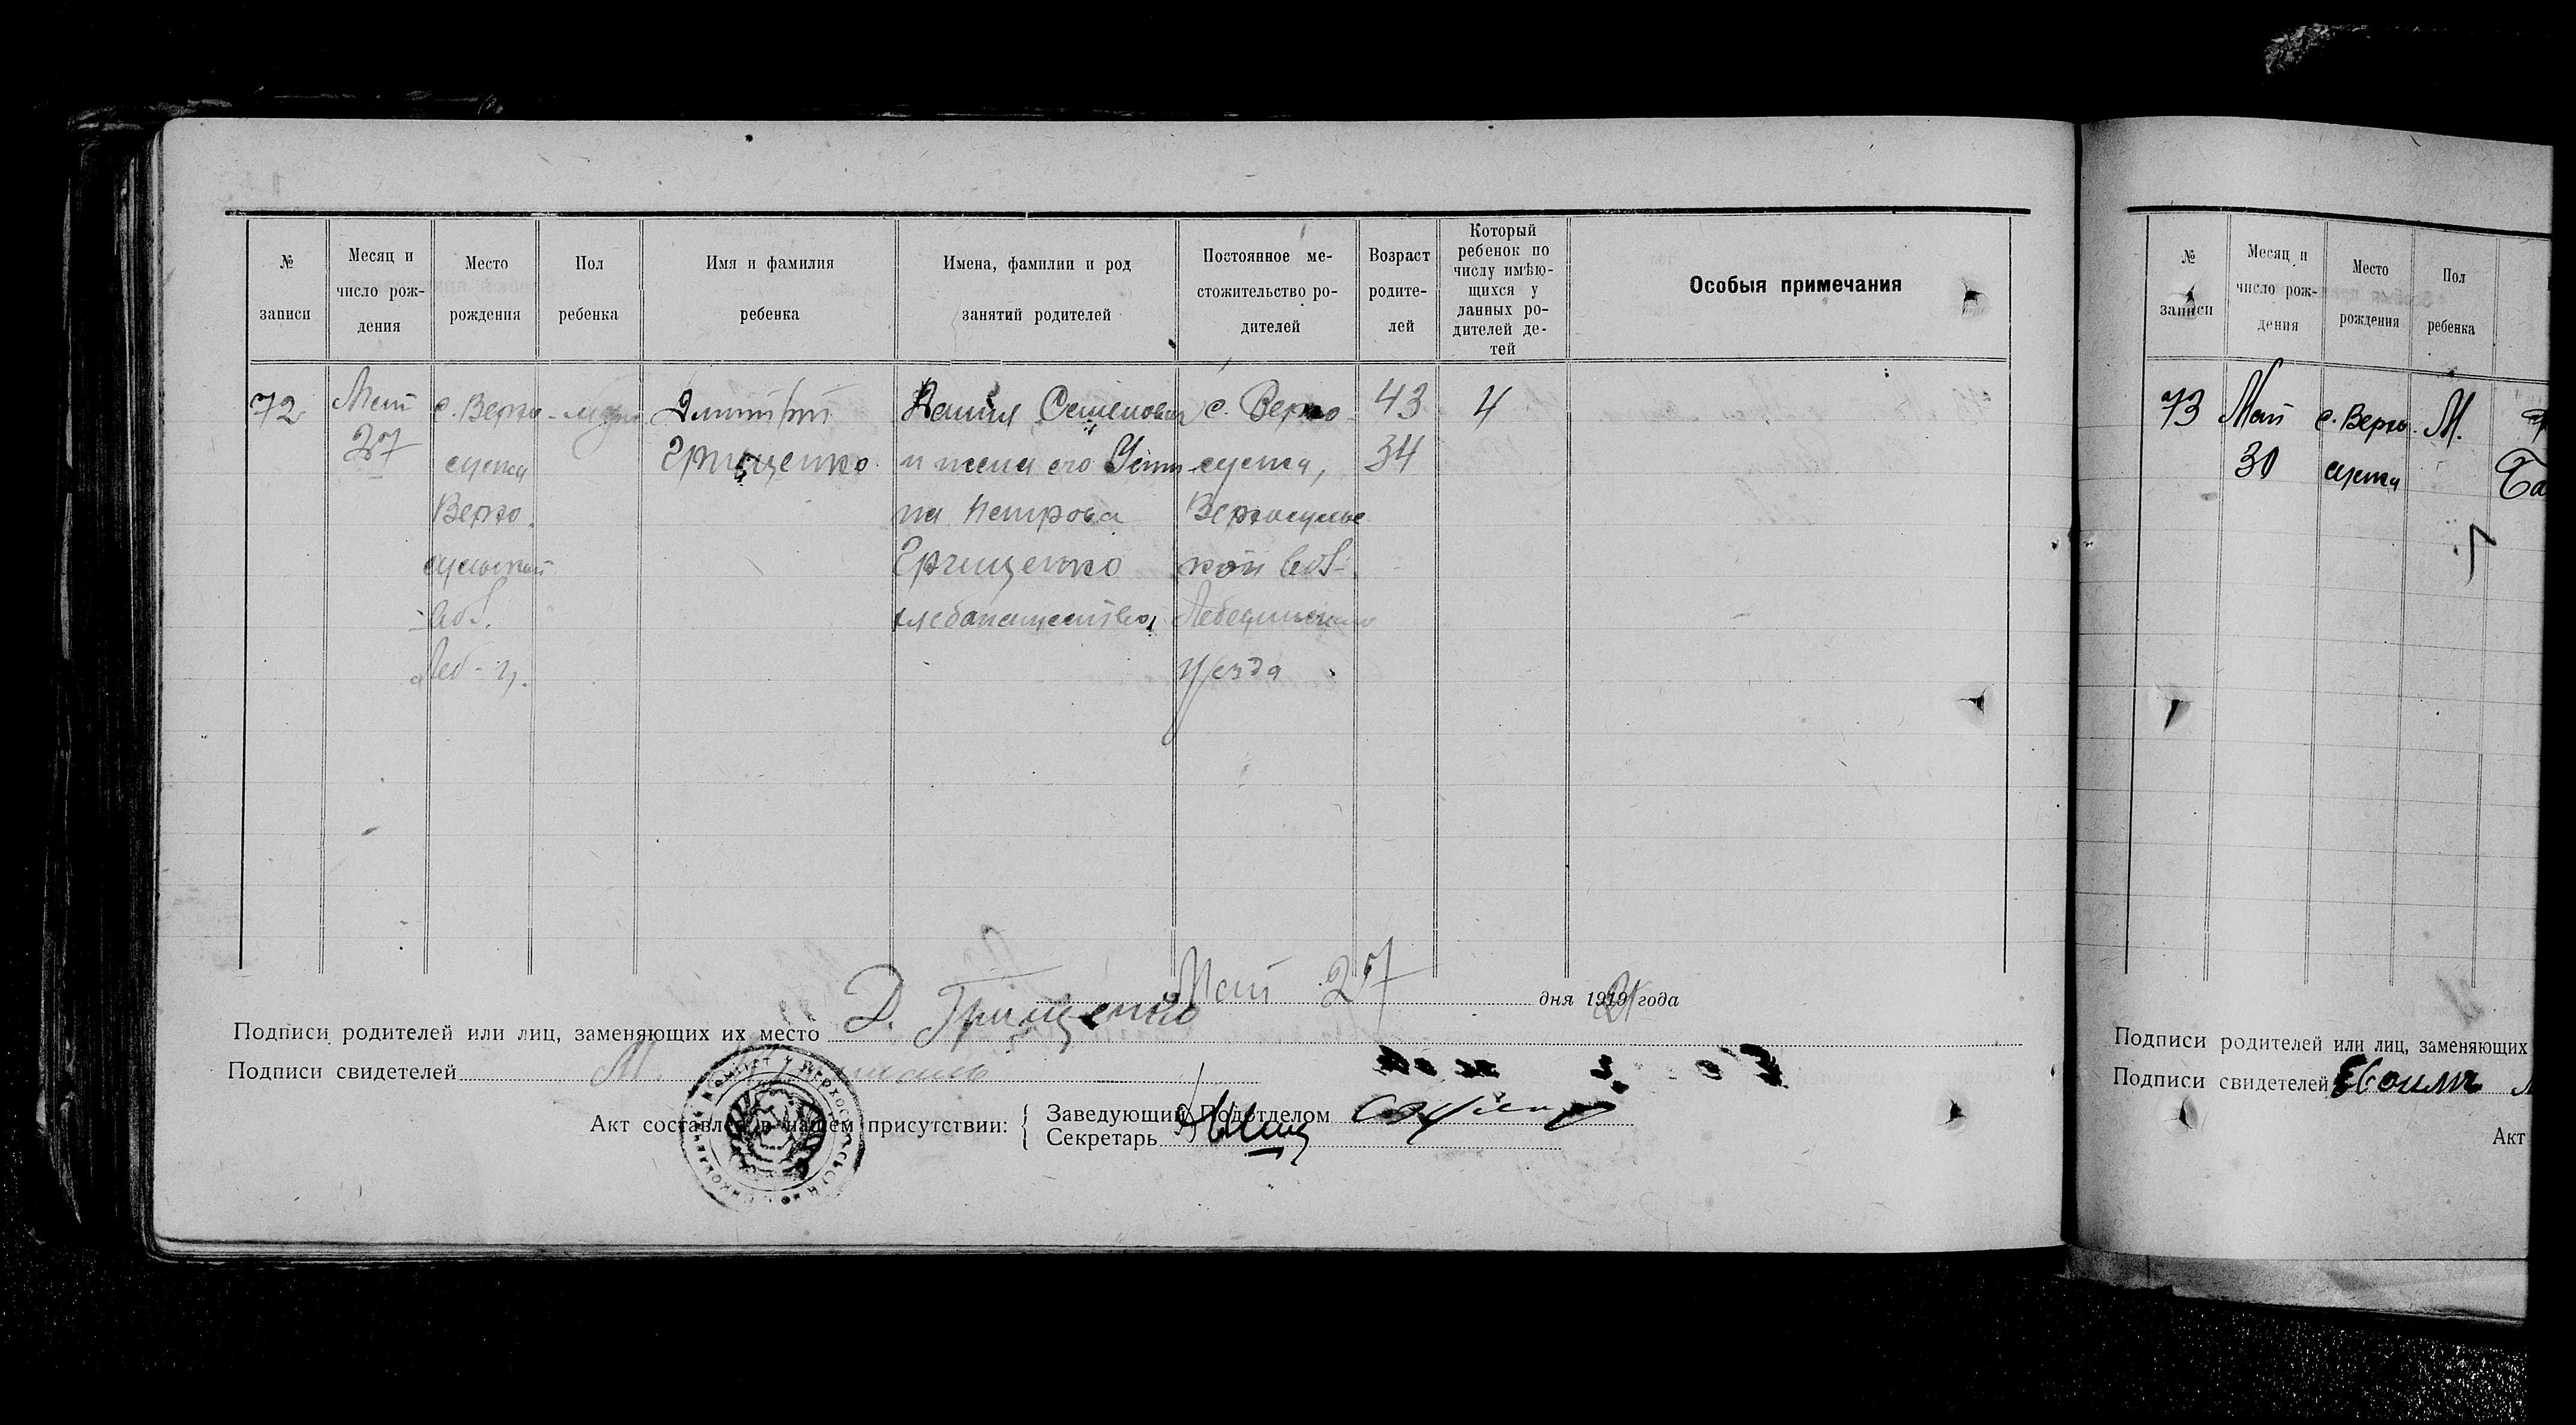 № записи
Месяц и число рождения
Место рождения
Пол ребенка
Имя и фамилия ребенка
Имена, фамилии и род занятий родителей
Постоянное местожительство родителей
Возраст родителей
Который ребенок по числу имѣющихся у данных родителей детей
Особыя примечания
72 Май с. Верхо- Димитрий Семенович с. Верхо- 43 4
27 сула Грищенко и жена его сула, 34
Верхо- на Петрова Верхосульс
сульской Грищенко кой вол-
вол. хлебопашество, Лебединского
Леб- у. уезда
Май 27 дня 1921 года
Подписи родителей или лиц, заменяющих их место Д. Грищенко
Подписи свидетелей М.
Акт составлен в нашем присутствии: Заведующий Подотделом
Секретарь
№ записи
Месяц и число рождения
Место рождения
Пол ребенка
73 Май с. Верхо- М.
30 сула Ба
Подписи родителей или лиц, заменяющих
Подписи свидетелей
Акт